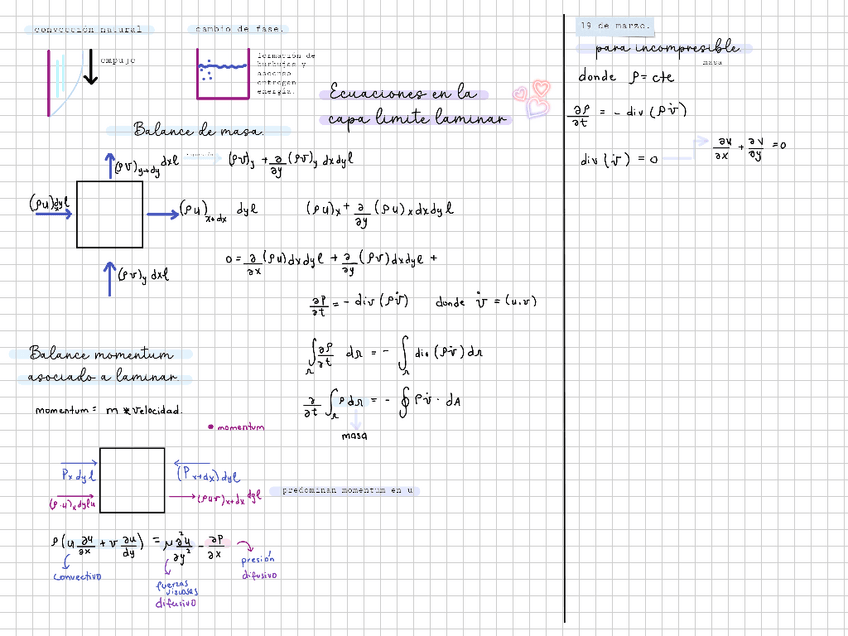 convección natural
empuje
cambio de fase.
formación de
burbujas y
ascenso
entregan
energía.
Ecuaciones en la
capa limite laminar
Balance de masa.
(ρv)y+dy dxl
(ρv)y + ∂/∂y (ρv)y dxdyl
(ρu)x dyl
(ρu)x+dx dyl
(ρu)x + ∂/∂y (ρu)x dxdyl
(ρv)y dxl
0 = ∂/∂x (ρu)dxdyl + ∂/∂y (ρv)dxdyl +
∂ρ/∂t = - div (ρv̇) donde v̇ = (u,v)
∫Ω ∂ρ/∂t dΩ = - ∫Ω div (ρv̇) dΩ
∂/∂t ∫Ω ρdΩ = - ∮ ρv̇ · dA
masa
Balance momentum
asociado a laminar.
momentum = m * velocidad.
• momentum
Px dyl
(Px+dx) dyl
(ρ·u)x dylu
(ρur)x+dx dyl
predominan momentum en u
ρ(u ∂u/∂x + v ∂u/dy) = μ ∂²u/∂y² - ∂P/∂x
convectivo
fuerzas
viscosas
difusivo
presión
difusivo
19 de marzo.
para incompresible
masa
donde ρ = cte
∂ρ/∂t = - div (ρv̇)
div (v̇) = 0
∂u/∂x + ∂v/∂y = 0